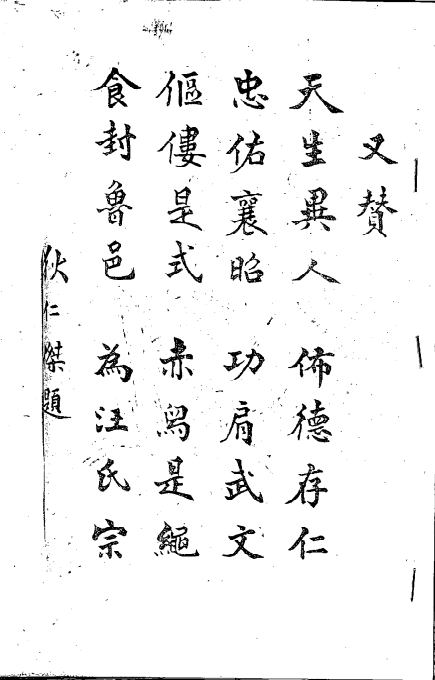 又赞
天生異人 佈德存仁
忠佑襄昭 功肩武文
傴僂是式 赤舄是繩
食封魯邑 為汪氏宗
狄仁傑題